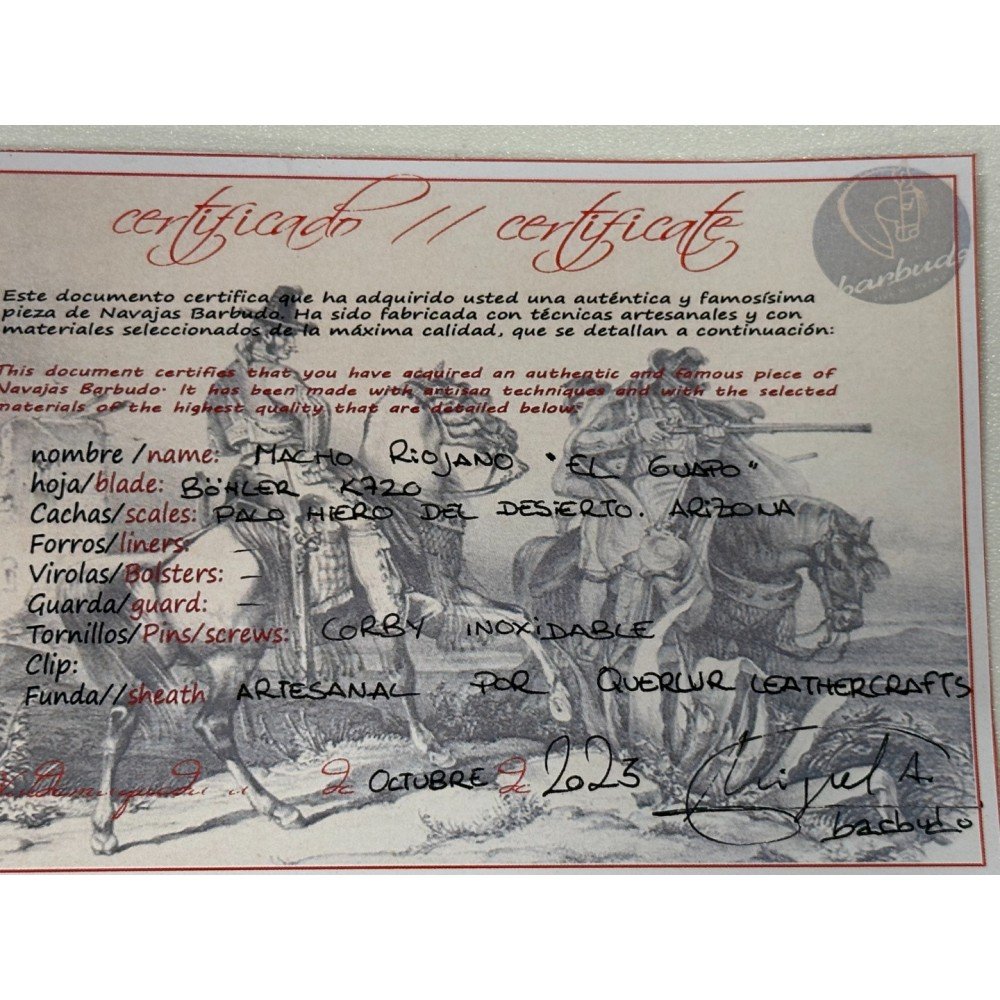 certificado // certificate
barbudo
Este documento certifica que ha adquirido usted una auténtica y famosísima
pieza de Navajas Barbudo. Ha sido fabricada con técnicas artesanales y con
materiales seleccionados de la máxima calidad, que se detallan a continuación:
This document certifies that you have acquired an authentic and famous piece of
Navajas Barbudo. It has been made with artisan techniques and with the selected
materials of the highest quality that are detailed below:
nombre /name: MACHO RIOJANO "EL GUAPO"
hoja/blade: BÖHLER K720
Cachas/scales: PALO HIERO DEL DESIERTO. ARIZONA
Forros/liners: —
Virolas/Bolsters: —
Guarda/guard: —
Tornillos/Pins/screws: CORBY INOXIDABLE
Clip:
Funda//sheath ARTESANAL POR QUERCUR LEATHERCRAFTS
de OCTUBRE de 2023 Miguel A.
barbudo